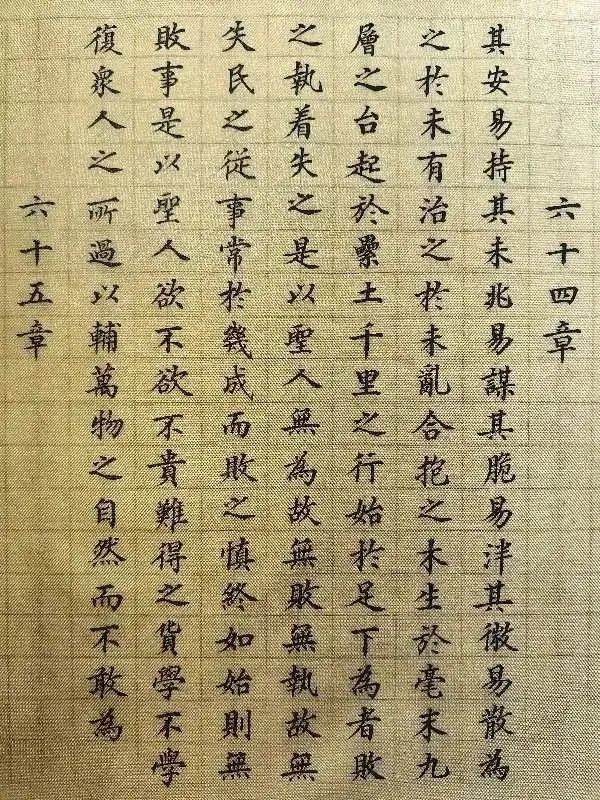 六十四章
其安易持其未兆易謀其脆易泮其微易散為
之於未有治之於未亂合抱之木生於毫末九
層之台起於纍土千里之行始於足下為者敗
之執着失之是以聖人無為故無敗無執故無
失民之從事常於幾成而敗之慎終如始則無
敗事是以聖人欲不欲不貴難得之貨學不學
復衆人之所過以輔萬物之自然而不敢為
六十五章